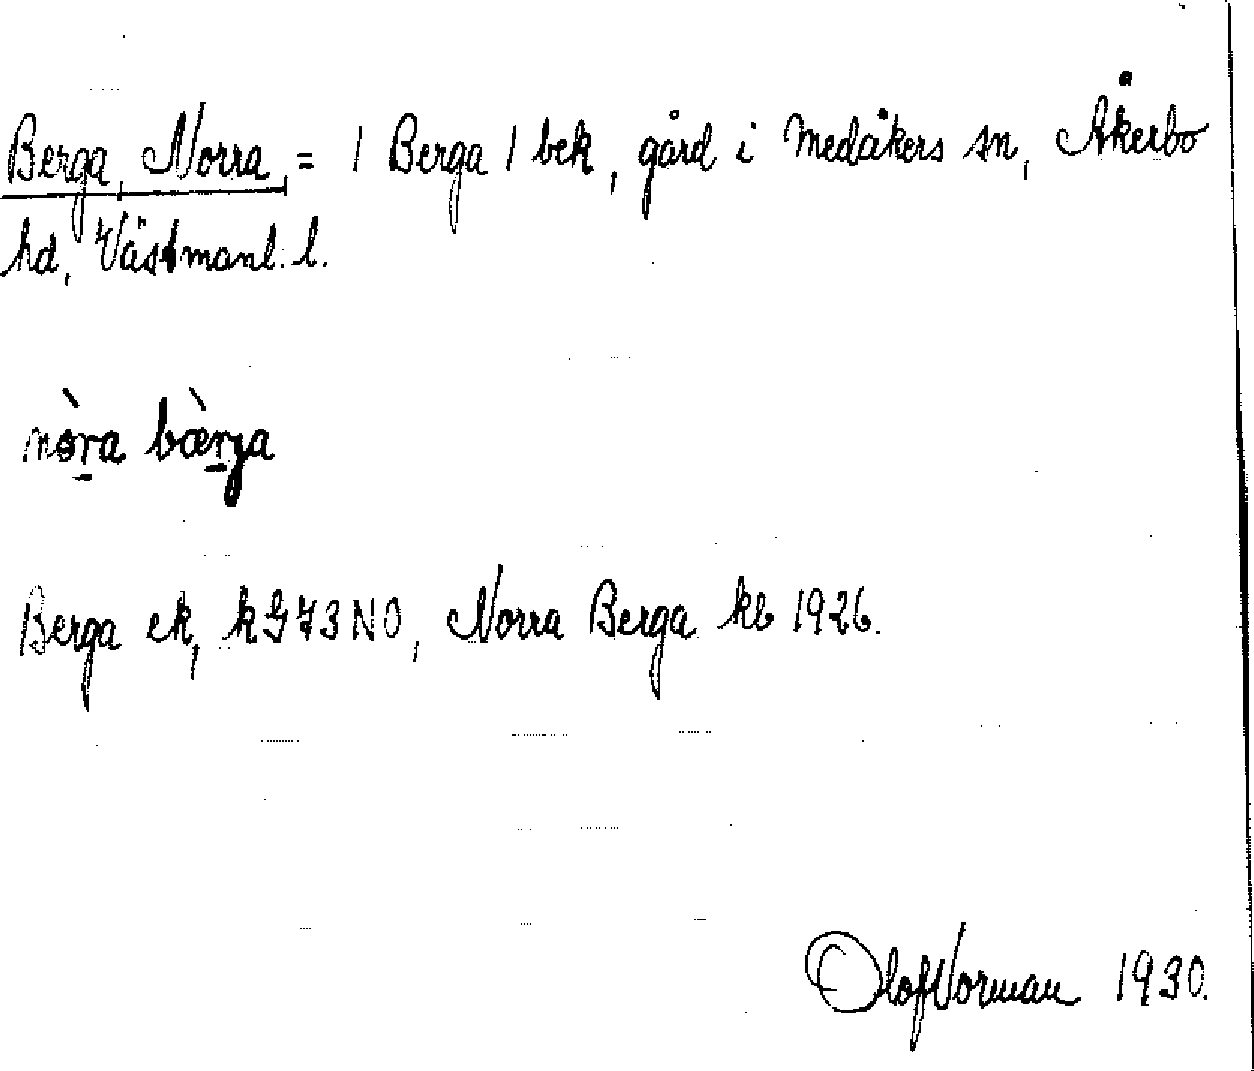 Berga, Norra, = 1 Berga 1 bek, gård i Medåkers sn, Åkerbo
hd, Västmanl. l.
nòra bæ̀rga
Berga ek, k G73NO, Norra Berga kb 1926.
Olof Norman 1930.